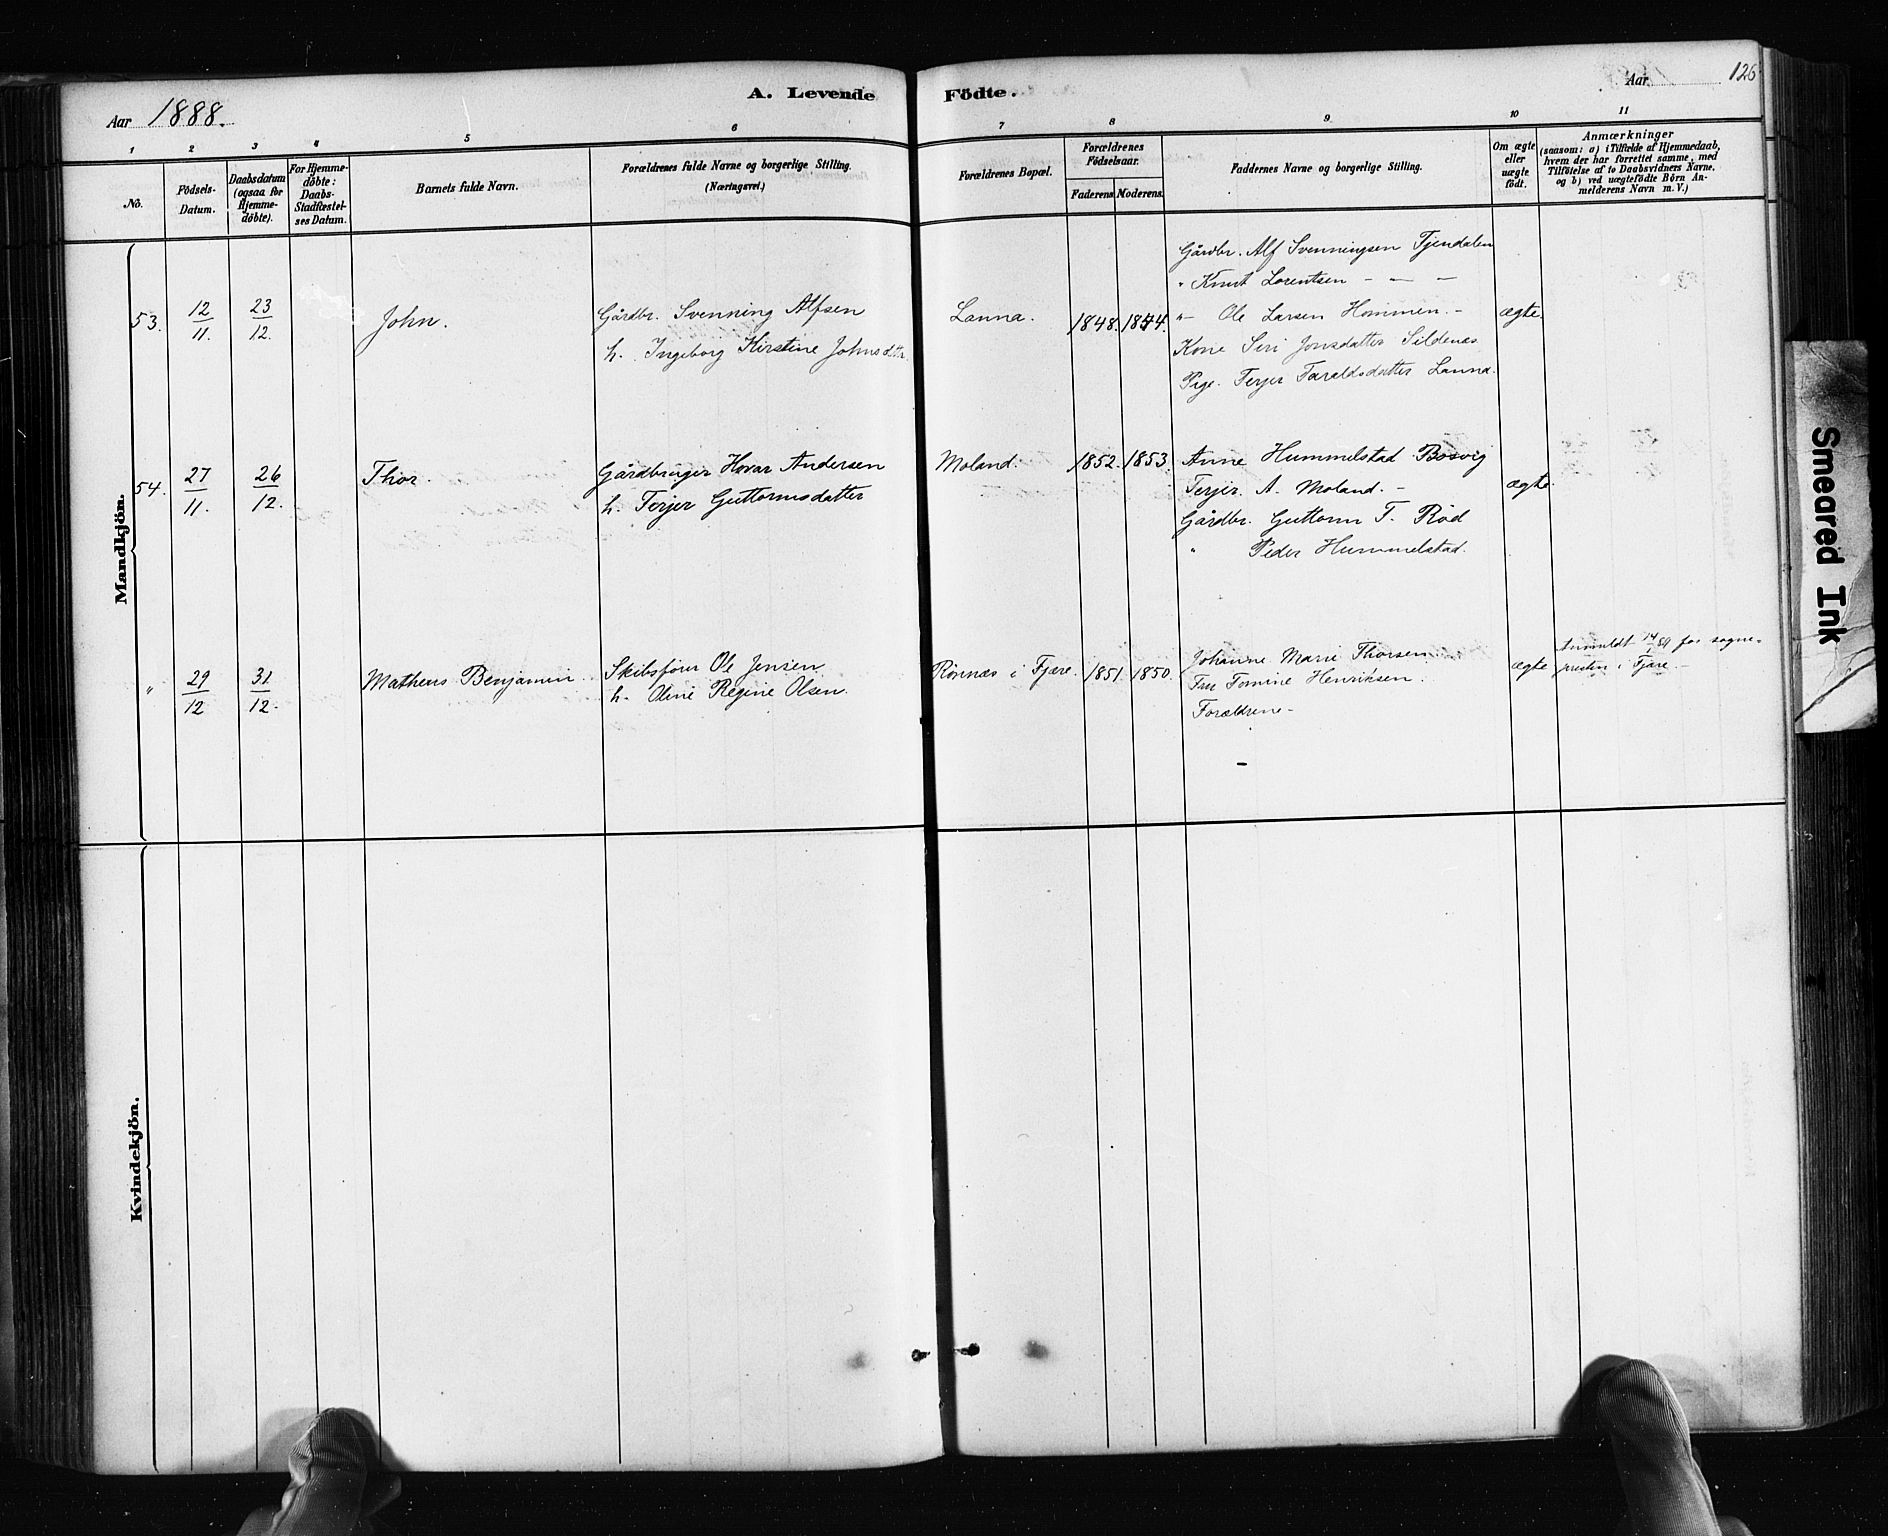 A. Levende Födte.
Aar 1888.
Aar
126
1 2 3 4 5 6 7 8 9 10 11
No.
Födsels-
Datum.
Daabsdatum
(ogsaa for
Hjemme-
döbte).
For Hjemme-
döbte:
Daabs-
Stadfæstel-
ses Datum.
Barnets fulde Navn.
Forældrenes fulde Navne og borgerlige Stilling.
(Næringsvei.)
Forældrenes Bopæl.
Forældrenes
Födselsaar.
Faderens. Moderens.
Faddernes Navne og borgerlige Stilling.
Om ægte
eller
uægte
födt.
Anmærkninger
(saasom: a) i Tilfælde af Hjemmedaab,
hvem der har forrettet samme, med
Tilföielse af to Daabsvidners Navne,
og b) ved uægtefödte Börn An-
melderens Navn m. V.)
Mandkjön.
53. 12/11. 23/12. John.
Gårdbr. Svenning Alfsen
h. Ingeborg Kirstine Johnsdtr.
Lanna. 1848. 1854.
Gårdbr. Alf Svenningsen Tjendalen
" Knut Lorentsen - - -
" - Ole Larsen Hommen. -
Kone Siri Jonsdatter Sildenæs
Pige. Terjer Taraldsdatter Lanna.
ægte.
54. 27/11. 26/12. Thor.
Gårdbruger Hovar Andersen
h. Terjer Guttormsdatter
Moland. 1852. 1853.
Anne Hummelstad Bosvig
Terjer. A. Moland. -
Gårdbr. Guttorm T. Röd
" Peder Hummelstad.
ægte.
" 29/12 31/12. Matheus Benjamin.
Skibsförer Ole Jensen
h. Oline Regine Olsen.
Rönnæs i Fjære. 1851. 1850.
Johanne Marie Thorsen
Fru Tomine Henriksen.
Forældrene -
-
ægte
Anmeldt 14/1 89 for sogne-
presten i Fjære. -
Kvindekjön.
Smeared Ink